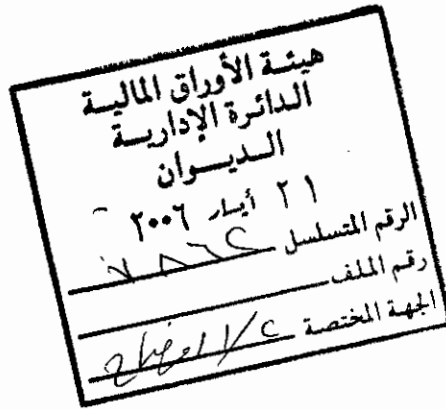 هيئة الأوراق المالية
الدائرة الإدارية
الديوان
٢١ أيار ٢٠٠٦
الرقم المتسلسل
رقم الملف
الجهة المختصة الإفصاح